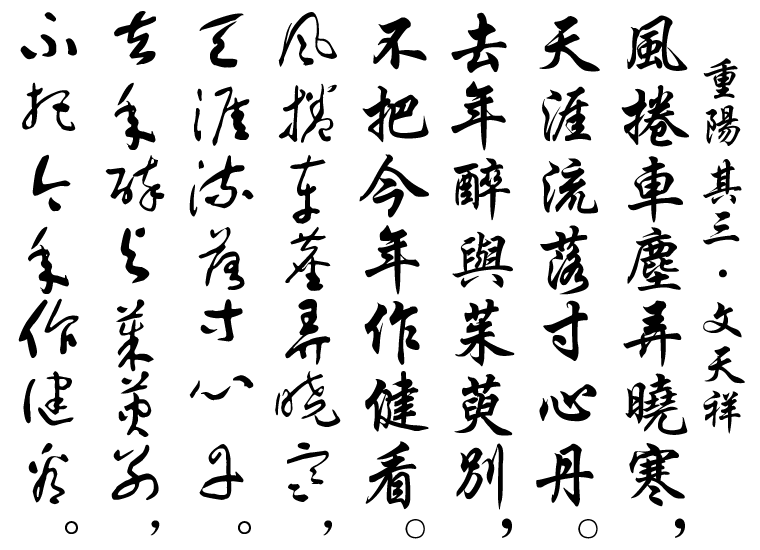 重陽 其三・文天祥
風捲車塵弄曉寒，
天涯流落寸心丹。
去年醉與茱萸別，
不把今年作健看。
風捲車塵弄曉寒，
天涯流落寸心丹。
去年醉與茱萸別，
不把今年作健看。